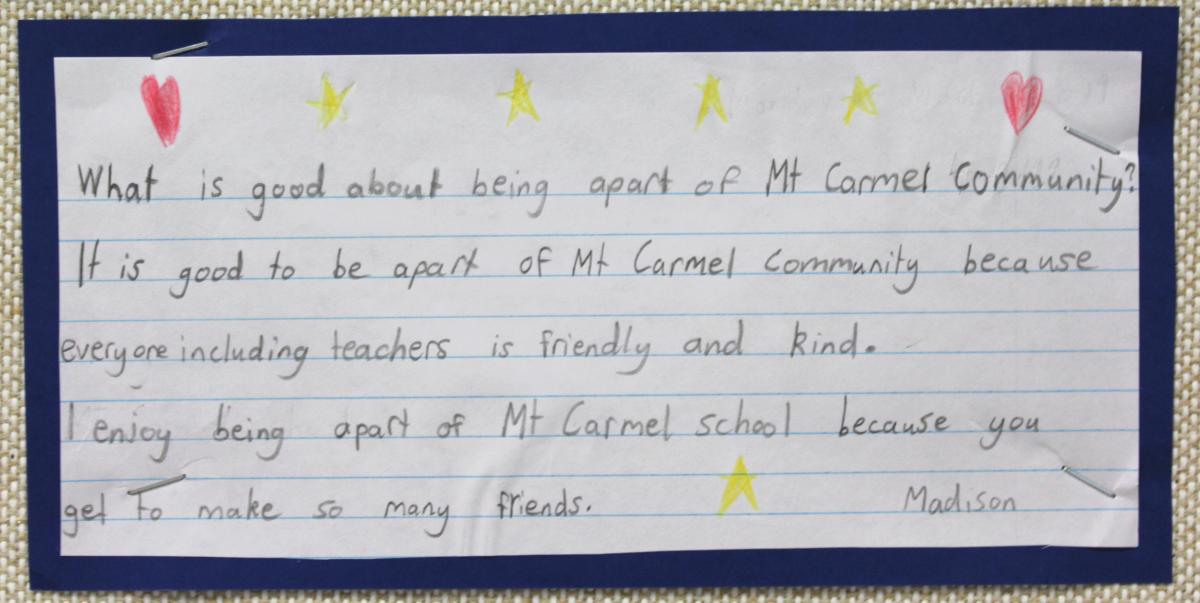 What is good about being apart of Mt Carmel Community?
It is good to be apart of Mt Carmel Community because
everyone including teachers is friendly and kind.
I enjoy being apart of Mt Carmel school because you
get to make so many friends.
Madison